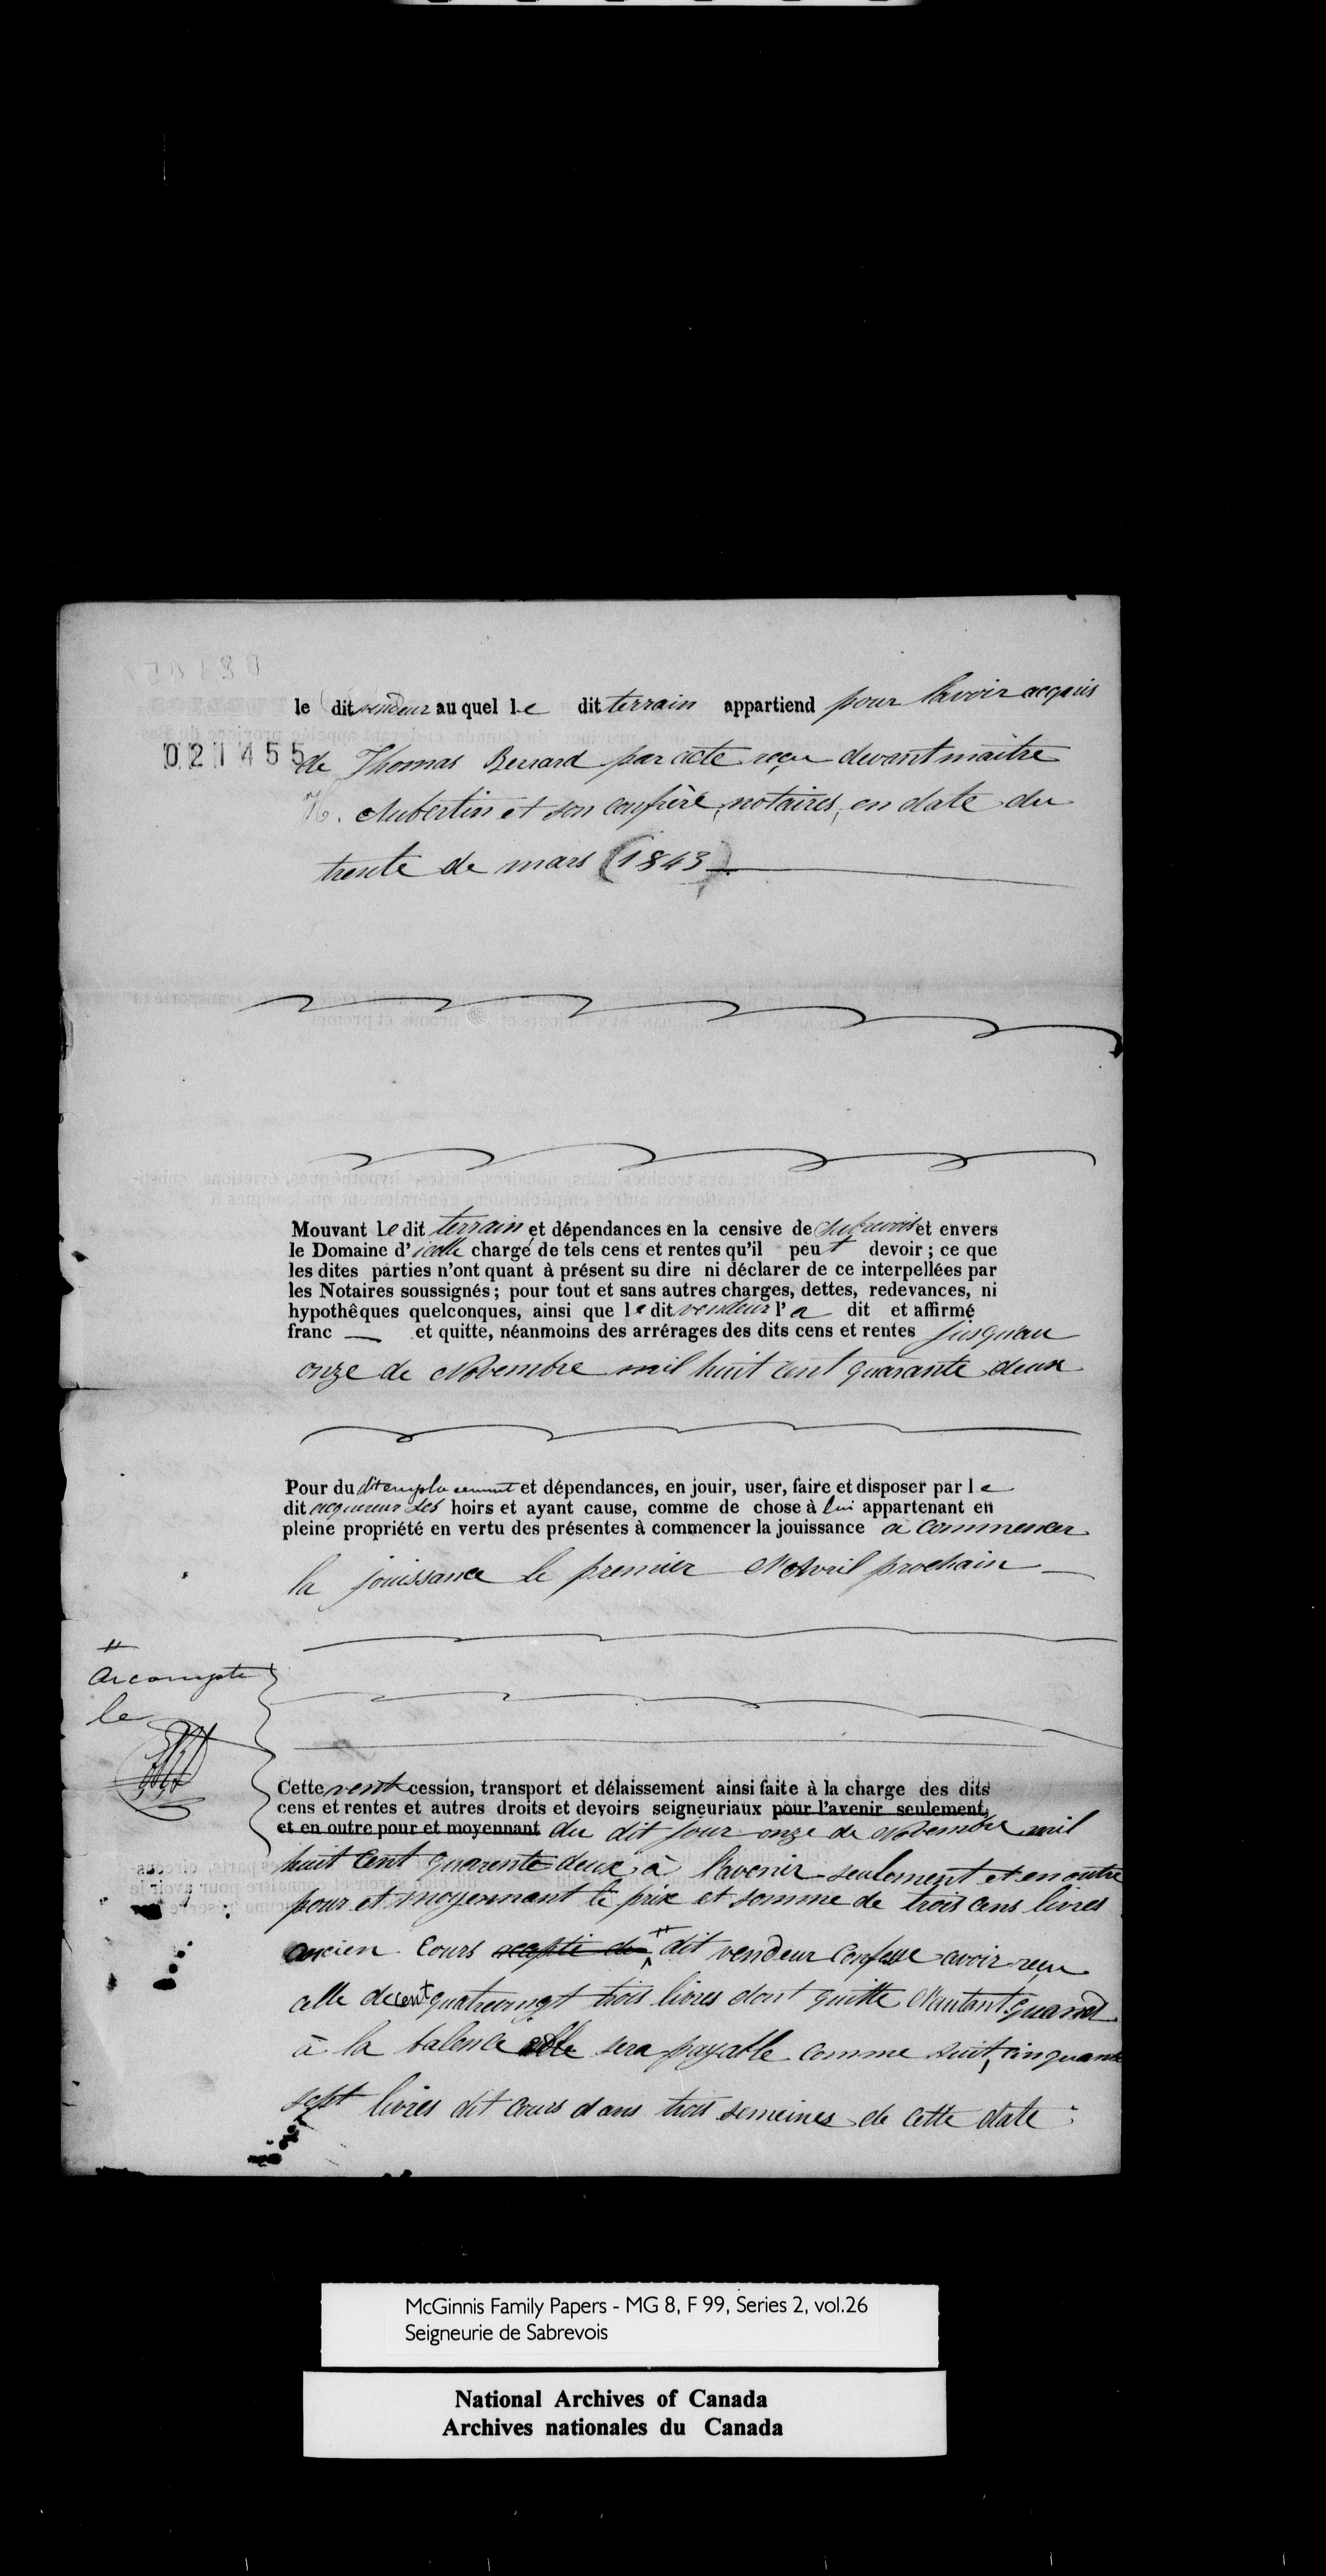 le dit vendeur au quel le dit terrain appartiend pour lavoir acquis
021455
de Thomas Bessard par acte reçu devant maitre
H. Aubertin et son confrère, notaires, en date du
trente de mars (1843)
Mouvant le dit terrain et dépendances en la censive de Sabrevois et envers
le Domaine d'icelle chargé de tels cens et rentes qu'il peut devoir ; ce que
les dites parties n'ont quant à présent su dire ni déclarer de ce interpellées par
les Notaires soussignés ; pour tout et sans autres charges, dettes, redevances, ni
hypothêques quelconques, ainsi que le dit vendeur l'a dit et affirmé
franc — et quitte, néanmoins des arrérages des dits cens et rentes jusquau
onze de Novembre mil huit cent quarante deux
Pour du dit emplacement et dépendances, en jouir, user, faire et disposer par le
dit acquereur ses hoirs et ayant cause, comme de chose à lui appartenant en
pleine propriété en vertu des présentes à commencer la jouissance à commencer
la jouissance le premier d'Avril prochain
#
Acompte
le
Cette vente cession, transport et délaissement ainsi faite à la charge des dits
cens et rentes et autres droits et devoirs seigneuriaux pour l'avenir seulement,
et en outre pour et moyennant du dit jour onze de Novembre mil
huit cent quarente deux à l'avenir seulement et en outre
pour et moyennant le prix et somme de trois cens livres
ancien cours # dit vendeur confesse avoir reçu
celle de cent quatrevingt trois livres dont quitte d'autant quand
à la balance elle sera payable comme suit, cinquante
sept livres dit cours dans trois semeines de cette date
McGinnis Family Papers - MG 8, F 99, Series 2, vol.26
Seigneurie de Sabrevois
National Archives of Canada
Archives nationales du Canada